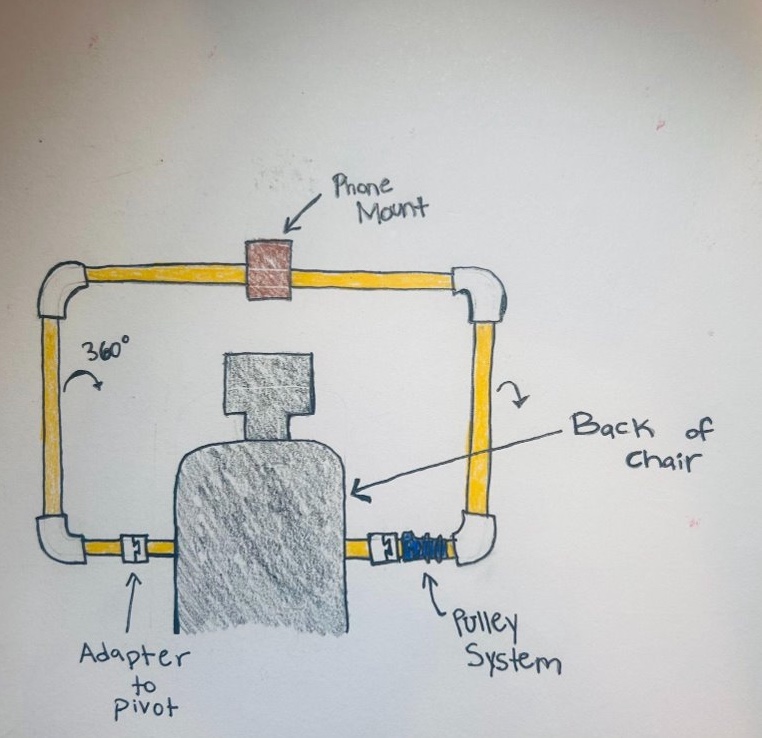 Phone
Mount
360°
Back of
Chair
Adapter
to
Pivot
Pulley
System